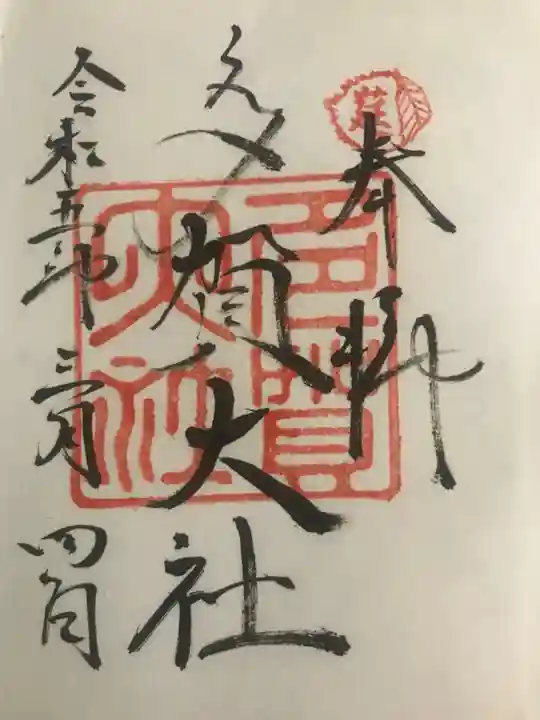 莚
奉拝
多賀大社
多賀
大社
令和五年三月四日